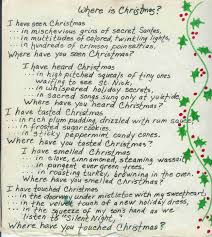 Where is Christmas?
I have seen Christmas
...in mischievous grins of secret Santas,
...in multitudes of colored, twinkling lights,
...in hundreds of crimson poinsettias.
Where have you seen Christmas?
I have heard Christmas
...in high pitched squeals of tiny ones
waiting to see St. Nick,
...in whispered holiday secrets,
...in sacred songs sung only at yuletide.
Where have you heard Christmas?
I have tasted Christmas
...in rich plum pudding, drizzled with rum sauce,
...in frosted sugar cookies,
...in sticky peppermint candy canes.
Where have you tasted Christmas?
I have smelled Christmas
...in clove, cinnamoned, steaming wassail,
...in pungent evergreen trees,
...in roasting turkey, browning in the oven.
Where have you smelled Christmas?
I have touched Christmas
...in the doorway under mistletoe with my sweetheart,
...in the velvet touch of a new holiday dress,
...in the squeeze of my son's hand as we
listen to "Silent Night."
Where have you touched Christmas?